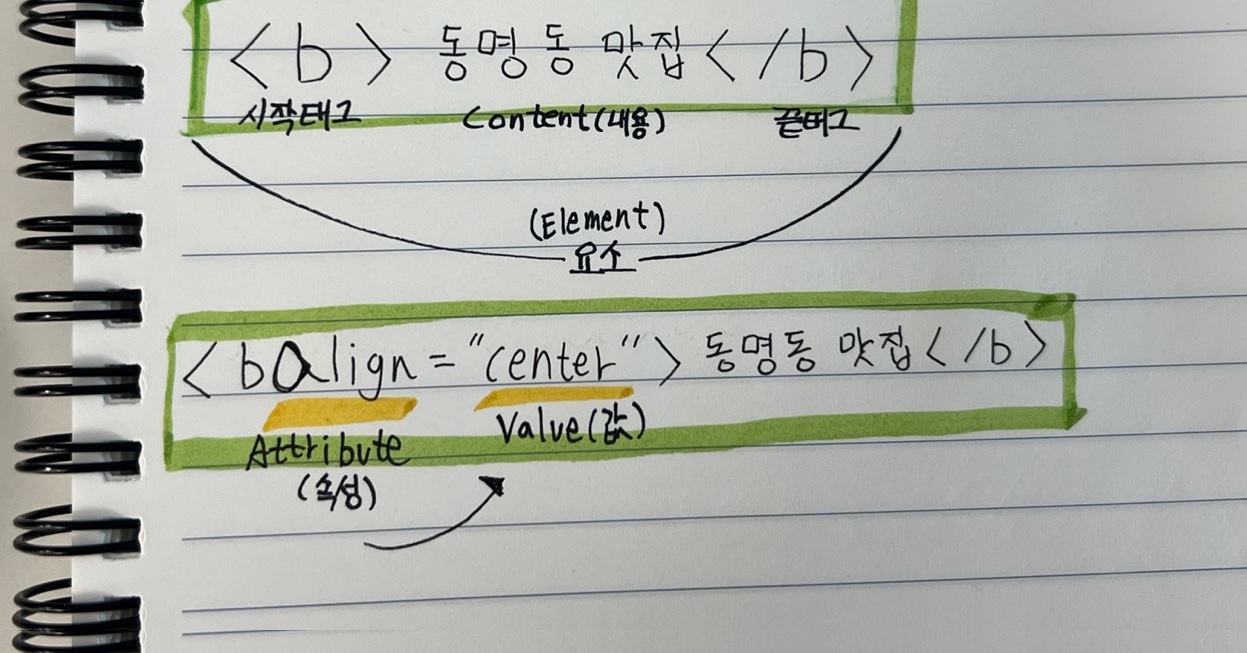 <b> 동명동 맛집</b>
시작태그 Content(내용) 끝태그
(Element)
요소
<b align="center"> 동명동 맛집</b>
Value(값)
Attribute
(속성)